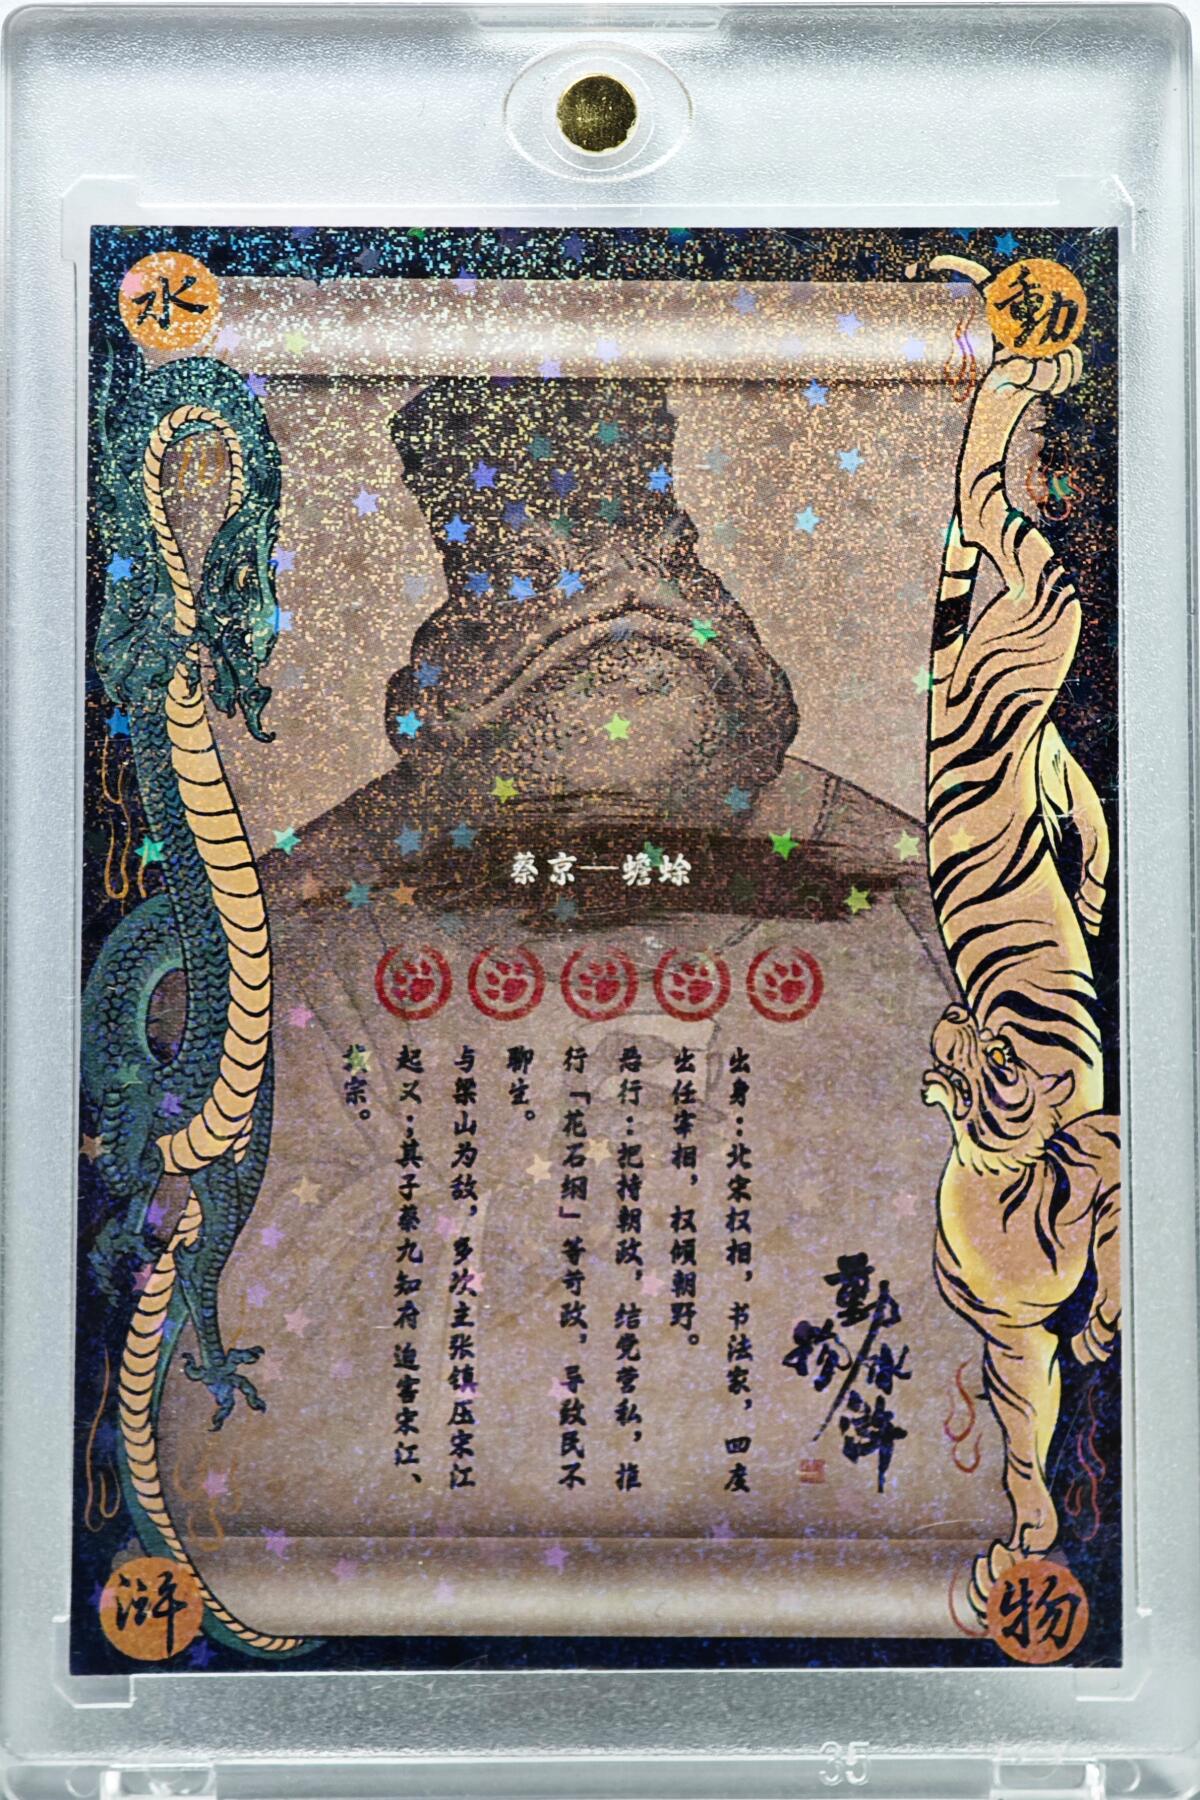 動
物
水
浒
蔡京—蟾蜍
動物
水浒
出身：北宋权相，书法家，四度
出任宰相，权倾朝野。
恶行：把持朝政，结党营私，推
行「花石纲」等苛政，导致民不
聊生。
与梁山为敌，多次主张镇压宋江
起义；其子蔡九知府迫害宋江、
戴宗。
35